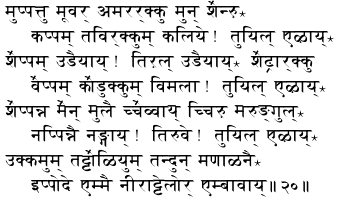 मुप्पत्तु मूवर् अमरर्क्कु मुन् शॆन्ऱु⋆
कप्पम् तविर्क्कुम् कलिये! तुयिल् एळाय्⋆
शॆप्पम् उडैयाय्! तिऱल् उडैयाय्⋆ शॆट्रार्क्कु
वॆप्पम् कॊडुक्कुम् विमला! तुयिल् एळाय्⋆
शॆप्पन्न मॆन् मुलै च्चॆव्वाय् च्चिऱु मरुङ्गुल्⋆
नप्पिन्नै नङ्गाय्! तिरुवे! तुयिल् एळाय्⋆
उक्कमुम् तट्टॊळियुम् तन्दुन् मणाळनै⋆
इप्पोदे एम्मै नीराट्टेलोर् एम्बावाय्॥२०॥